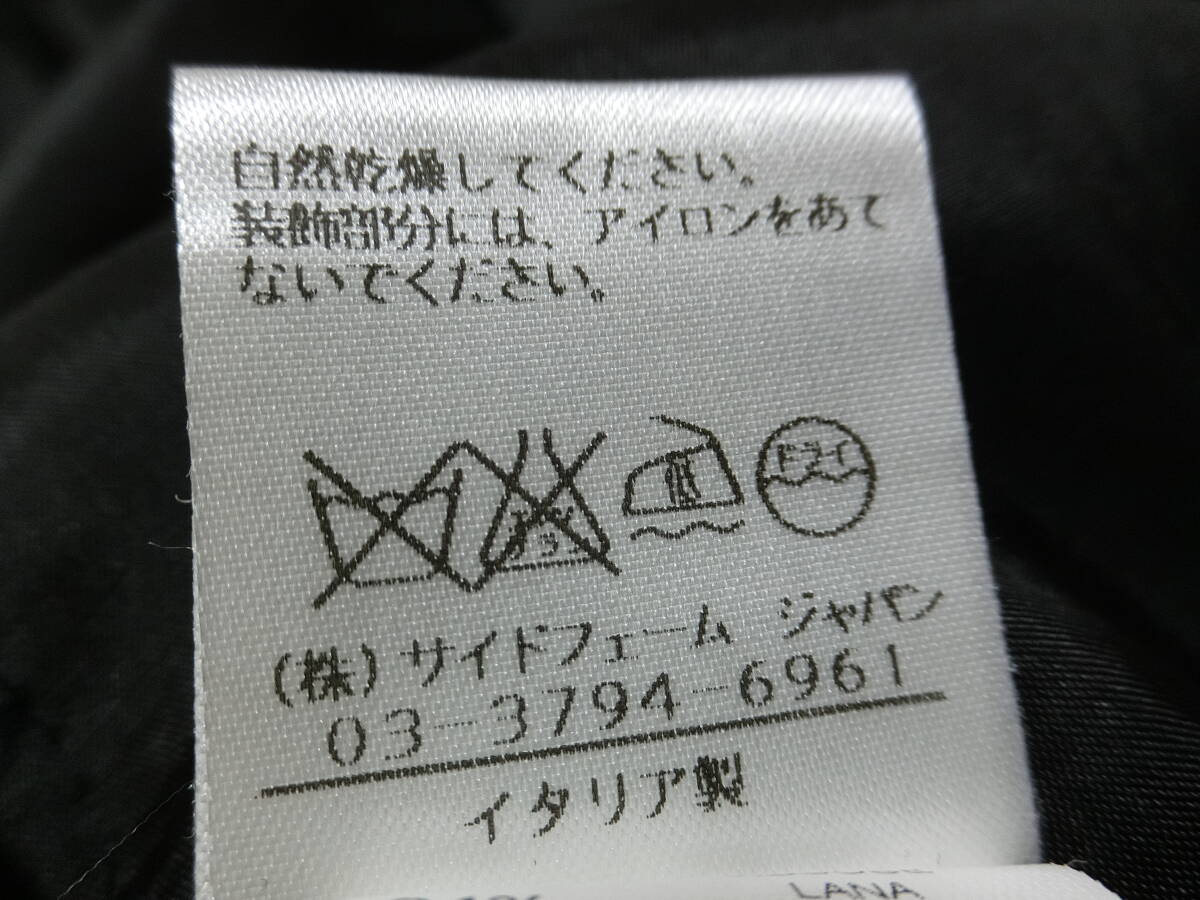 自然乾燥してください。
装飾部分には、アイロンをあて
ないでください。
低 ドライ
(株) サイドフェーム ジャパン
03-3794-6961
イタリア製
LANA